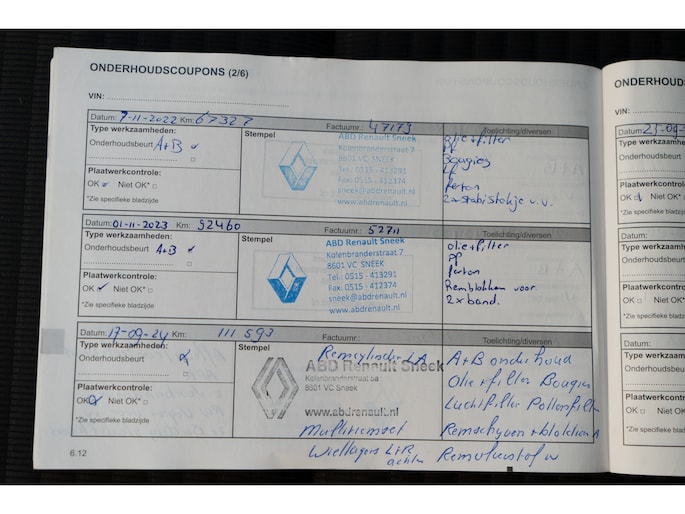 ONDERHOUDSCOUPONS (2/6)
VIN:
Datum: 7-11-2022 Km: 67327 Factuurnr.: 47173 Toelichting/diversen
Type werkzaamheden:
Onderhoudsbeurt A+B
Plaatwerkcontrole:
OK Niet OK*
*Zie specifieke bladzijde
Stempel
ABD Renault Sneek
Kolenbranderstraat 7
8601 VC SNEEK
Tel.: 0515 - 413291
Fax: 0515 - 412374
sneek@abdrenault.nl
www.abdrenault.nl
olie+filter
Bougies
2x stabistokje v.v.
Datum: 01-11-2023 Km: 92460 Factuurnr.: 52711 Toelichting/diversen
Type werkzaamheden:
Onderhoudsbeurt A+B
Plaatwerkcontrole:
OK Niet OK*
*Zie specifieke bladzijde
Stempel
ABD Renault Sneek
Kolenbranderstraat 7
8601 VC SNEEK
Tel.: 0515 - 413291
Fax: 0515 - 412374
sneek@abdrenault.nl
www.abdrenault.nl
olie+filter
pf
Remblokken voor
2x band.
Datum: 17-09-24 Km: 111 593 Factuurnr.: Toelichting/diversen
Type werkzaamheden:
Onderhoudsbeurt
Plaatwerkcontrole:
OK Niet OK*
*Zie specifieke bladzijde
Stempel
Remcylinder LA
ABD Renault Sneek
8601 VC SNEEK
www.abdrenault.nl
Multiriemset
Wiellagers L+R
achter
A+B onderhoud
Olie+filter Bougies
Luchtfilter Pollenfilter
Remschyven+blokken A
Remvloeistof
6.12
ONDERHOUDS
VIN:
Datum:
Type werkzaam
Onderhoudsbeurt
Plaatwerkcontro
OK Niet OK
*Zie specifieke blad
Datum:
Type werkzaam
Onderhoudsbeurt
Plaatwerkcontro
OK Niet OK
*Zie specifieke blad
Datum:
Type werkzaam
Onderhoudsbeurt
Plaatwerkcontro
OK Niet OK
*Zie specifieke blad